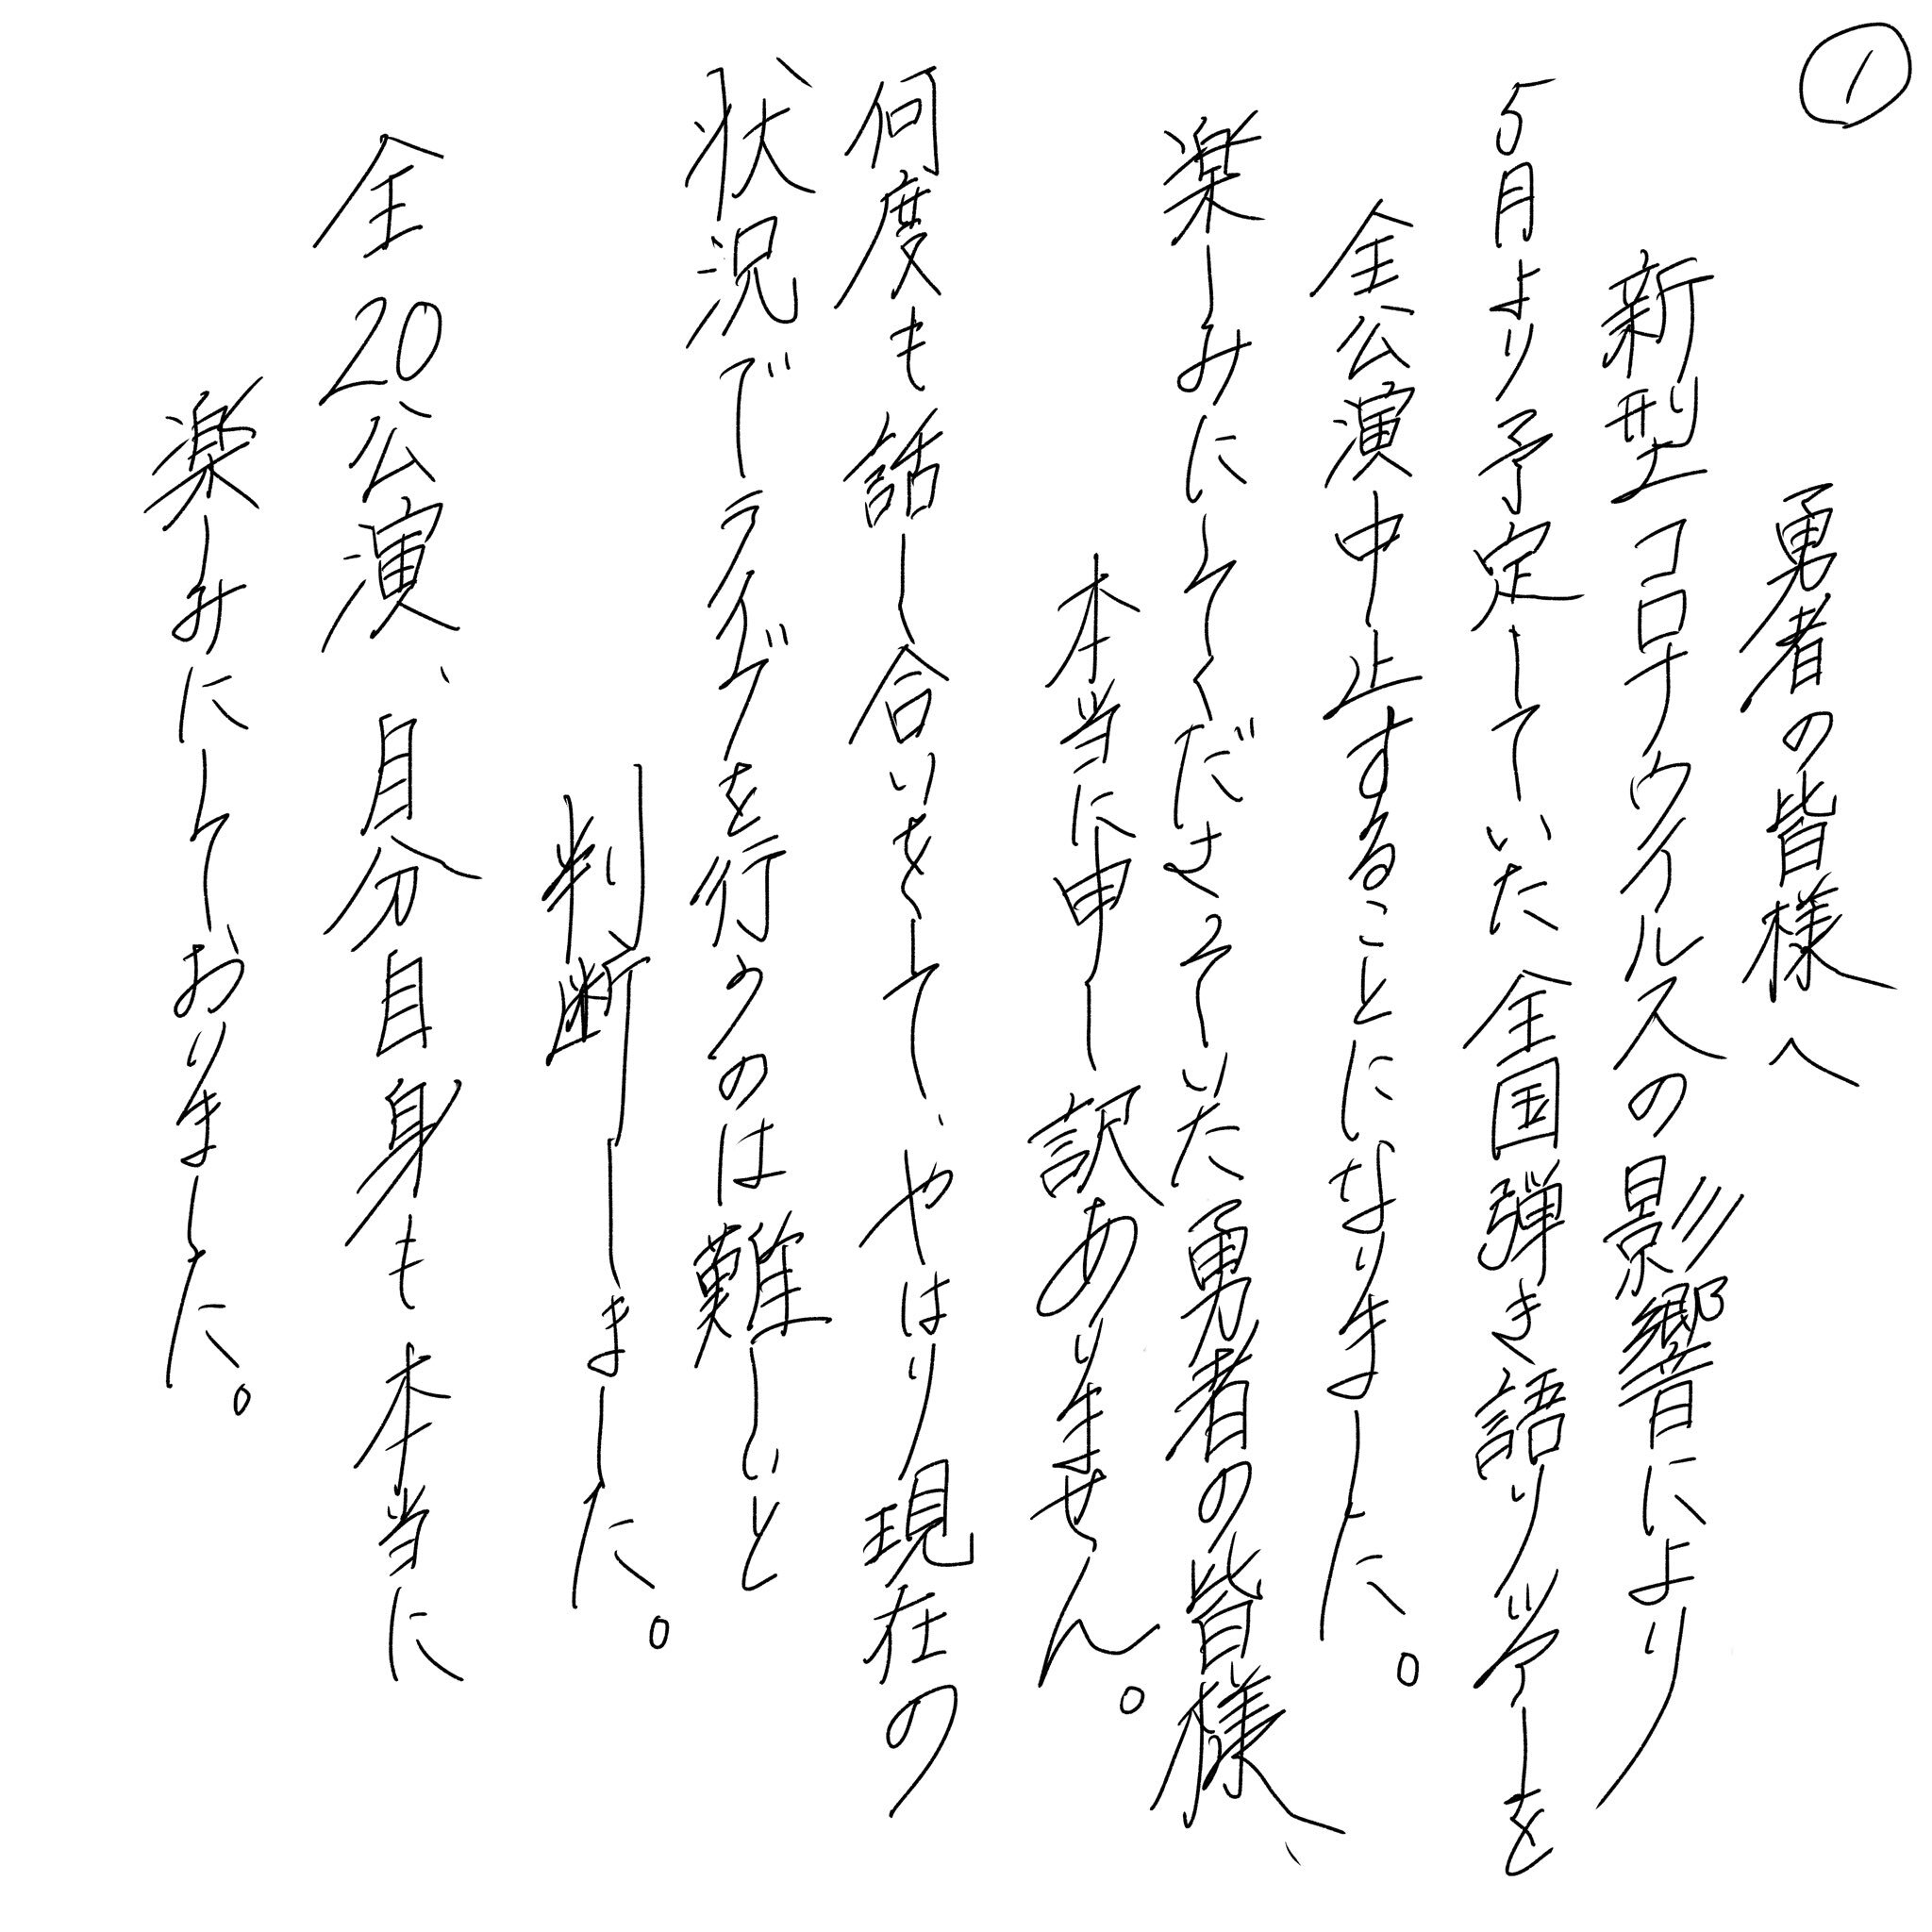 ①
勇者の皆様へ
新型コロナウイルスの影響により
5月より予定していた全国弾き語りツアーを
全公演中止することになりました。
楽しみにしてくださっていた勇者の皆様、
本当に申し訳ありません。
何度も話し合いをして、やはり現在の
状況でライブを行うのは難しいと
判断しました。
全20公演、自分自身も本当に
楽しみにしておりました。